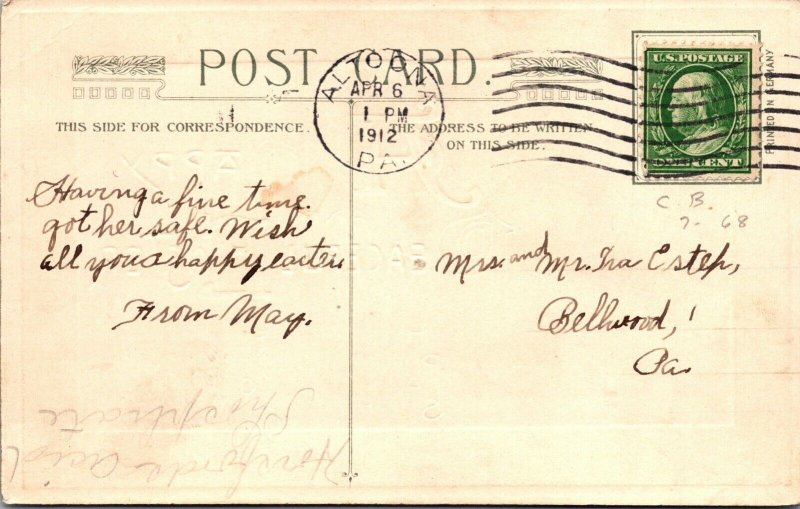 POST CARD.
THIS SIDE FOR CORRESPONDENCE.
THE ADDRESS TO BE WRITTEN
ON THIS SIDE.
ALTOONA
APR 6
1 PM
1912
PA.
U.S. POSTAGE
ONE CENT
PRINTED IN GERMANY
C. B.
7- 68
Having a fine time.
got her safe. Wish
all you a happy easter.
From May.
Mrs. and Mr. Ira Estep,
Bellwood,
Pa.
Horsfords acid
Phosphate